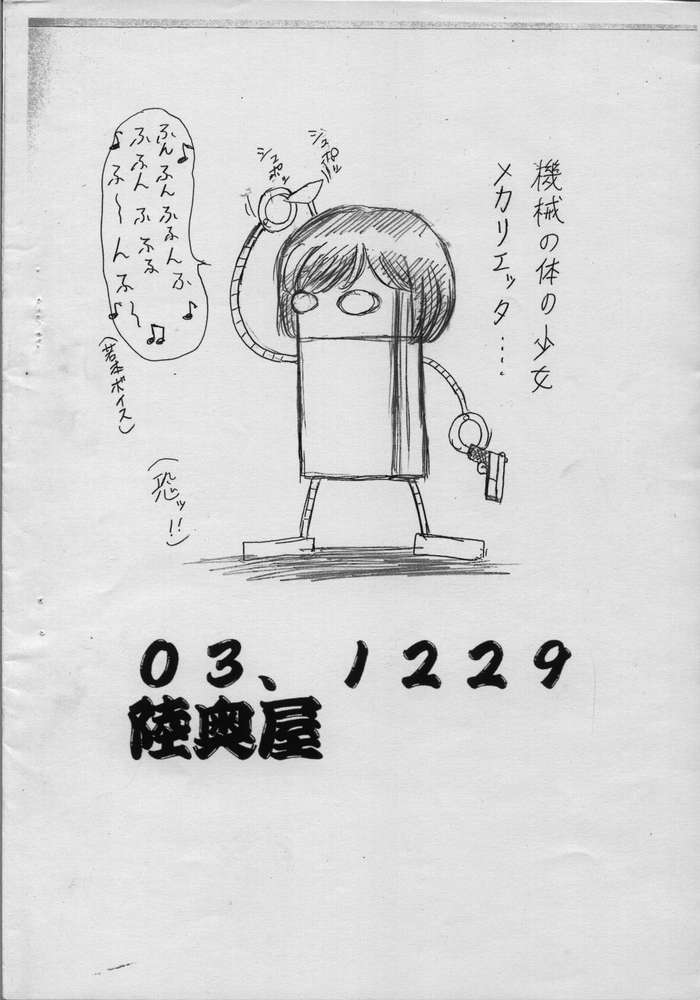 機械の体の少女
メカリエッタ‥‥
ジュポッ
ジュポッ
♪ふんふんふるんふ
ふふん ふふる
ふ〜んふ〜♪
(若本ボイス)
(恐ッ!!)
03、1229
陸奥屋